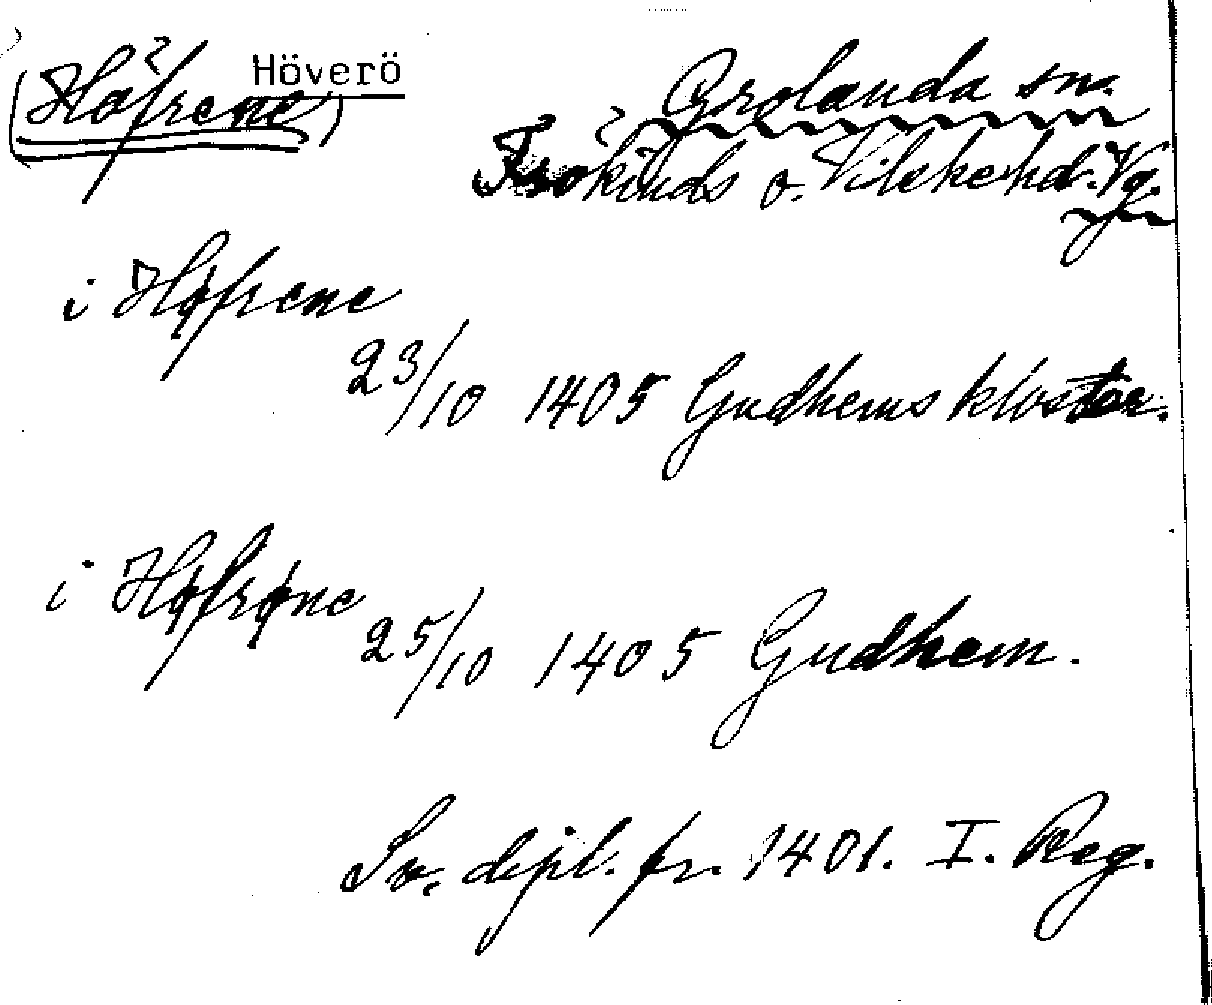 Höverö
(Höfrene) ? Grolanda sn.
? Frökinds o. Vilske hd. Vg.
i Høfrene
23/10 1405 Gudhems kloster.
i Høfrøne
25/10 1405 Gudhem.
Sv. dipl. fr. 1401. I. Reg.